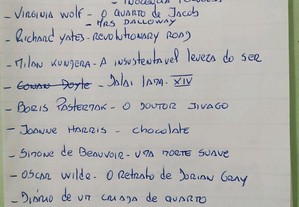 - VIRGINIA WOLF - O QUARTO DE JACOB
- MRS DALLOWAY
- RICHARD YATES - REVOLUTIONARY ROAD
- MILAN KUNDERA - A INSUSTENTÁVEL LEVEZA DO SER
- CONAN DOYLE - DALAI LAMA XIV
- BORIS PASTERNAK - O DOUTOR JIVAGO
- JOANNE HARRIS - CHOCOLATE
- SIMONE DE BEAUVOIR - UMA MORTE SUAVE
- OSCAR WILDE - O RETRATO DE DORIAN GRAY
- DIÁRIO DE UM CRIADA DE QUARTO